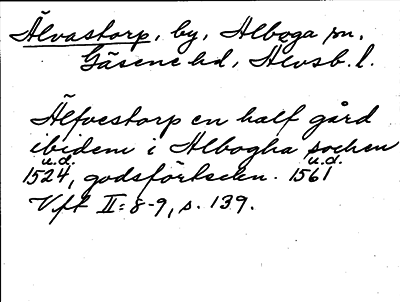 Älvastorp, by, Alboga sn,
Gäsene hd, Älvsb. l.
Älfvestorp en half gård
ibidem i Albogha sochen
u.d. u.d.
1524, godsförteckn. 1561
Vft II: 8-9, s. 139.